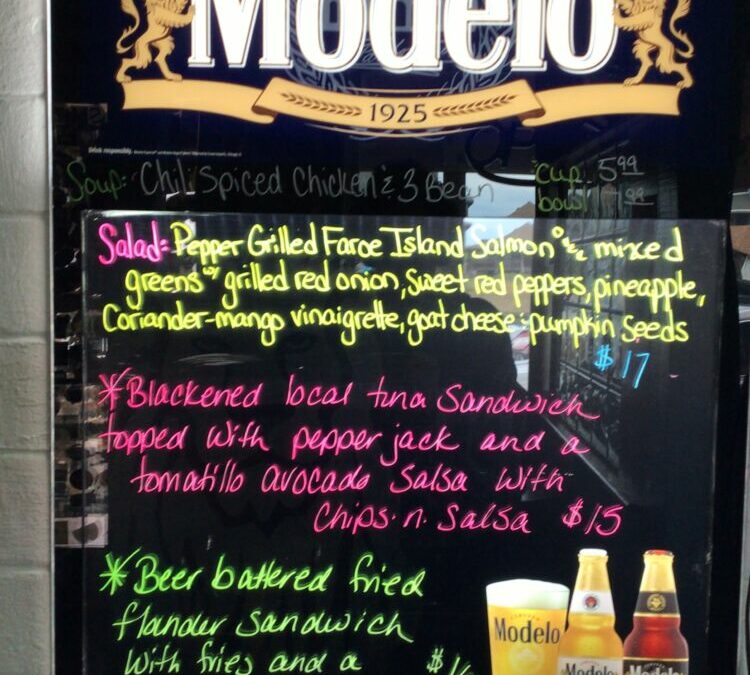 Modelo
1925
Drink responsibly.
Soup: Chili Spiced Chicken & 3 Bean cup 5.99
bowl
Salad: Pepper Grilled Faroe Island Salmon on mixed
greens w/ grilled red onion, sweet red peppers, pineapple,
Coriander-mango vinaigrette, goat cheese & pumpkin seeds
$17
*Blackened local tuna Sandwich
topped with pepper jack and a
tomatillo avocado Salsa with
Chips-n-Salsa $15
*Beer battered fried
flander Sandwich
with fries and a
Modelo
Modelo
Modelo